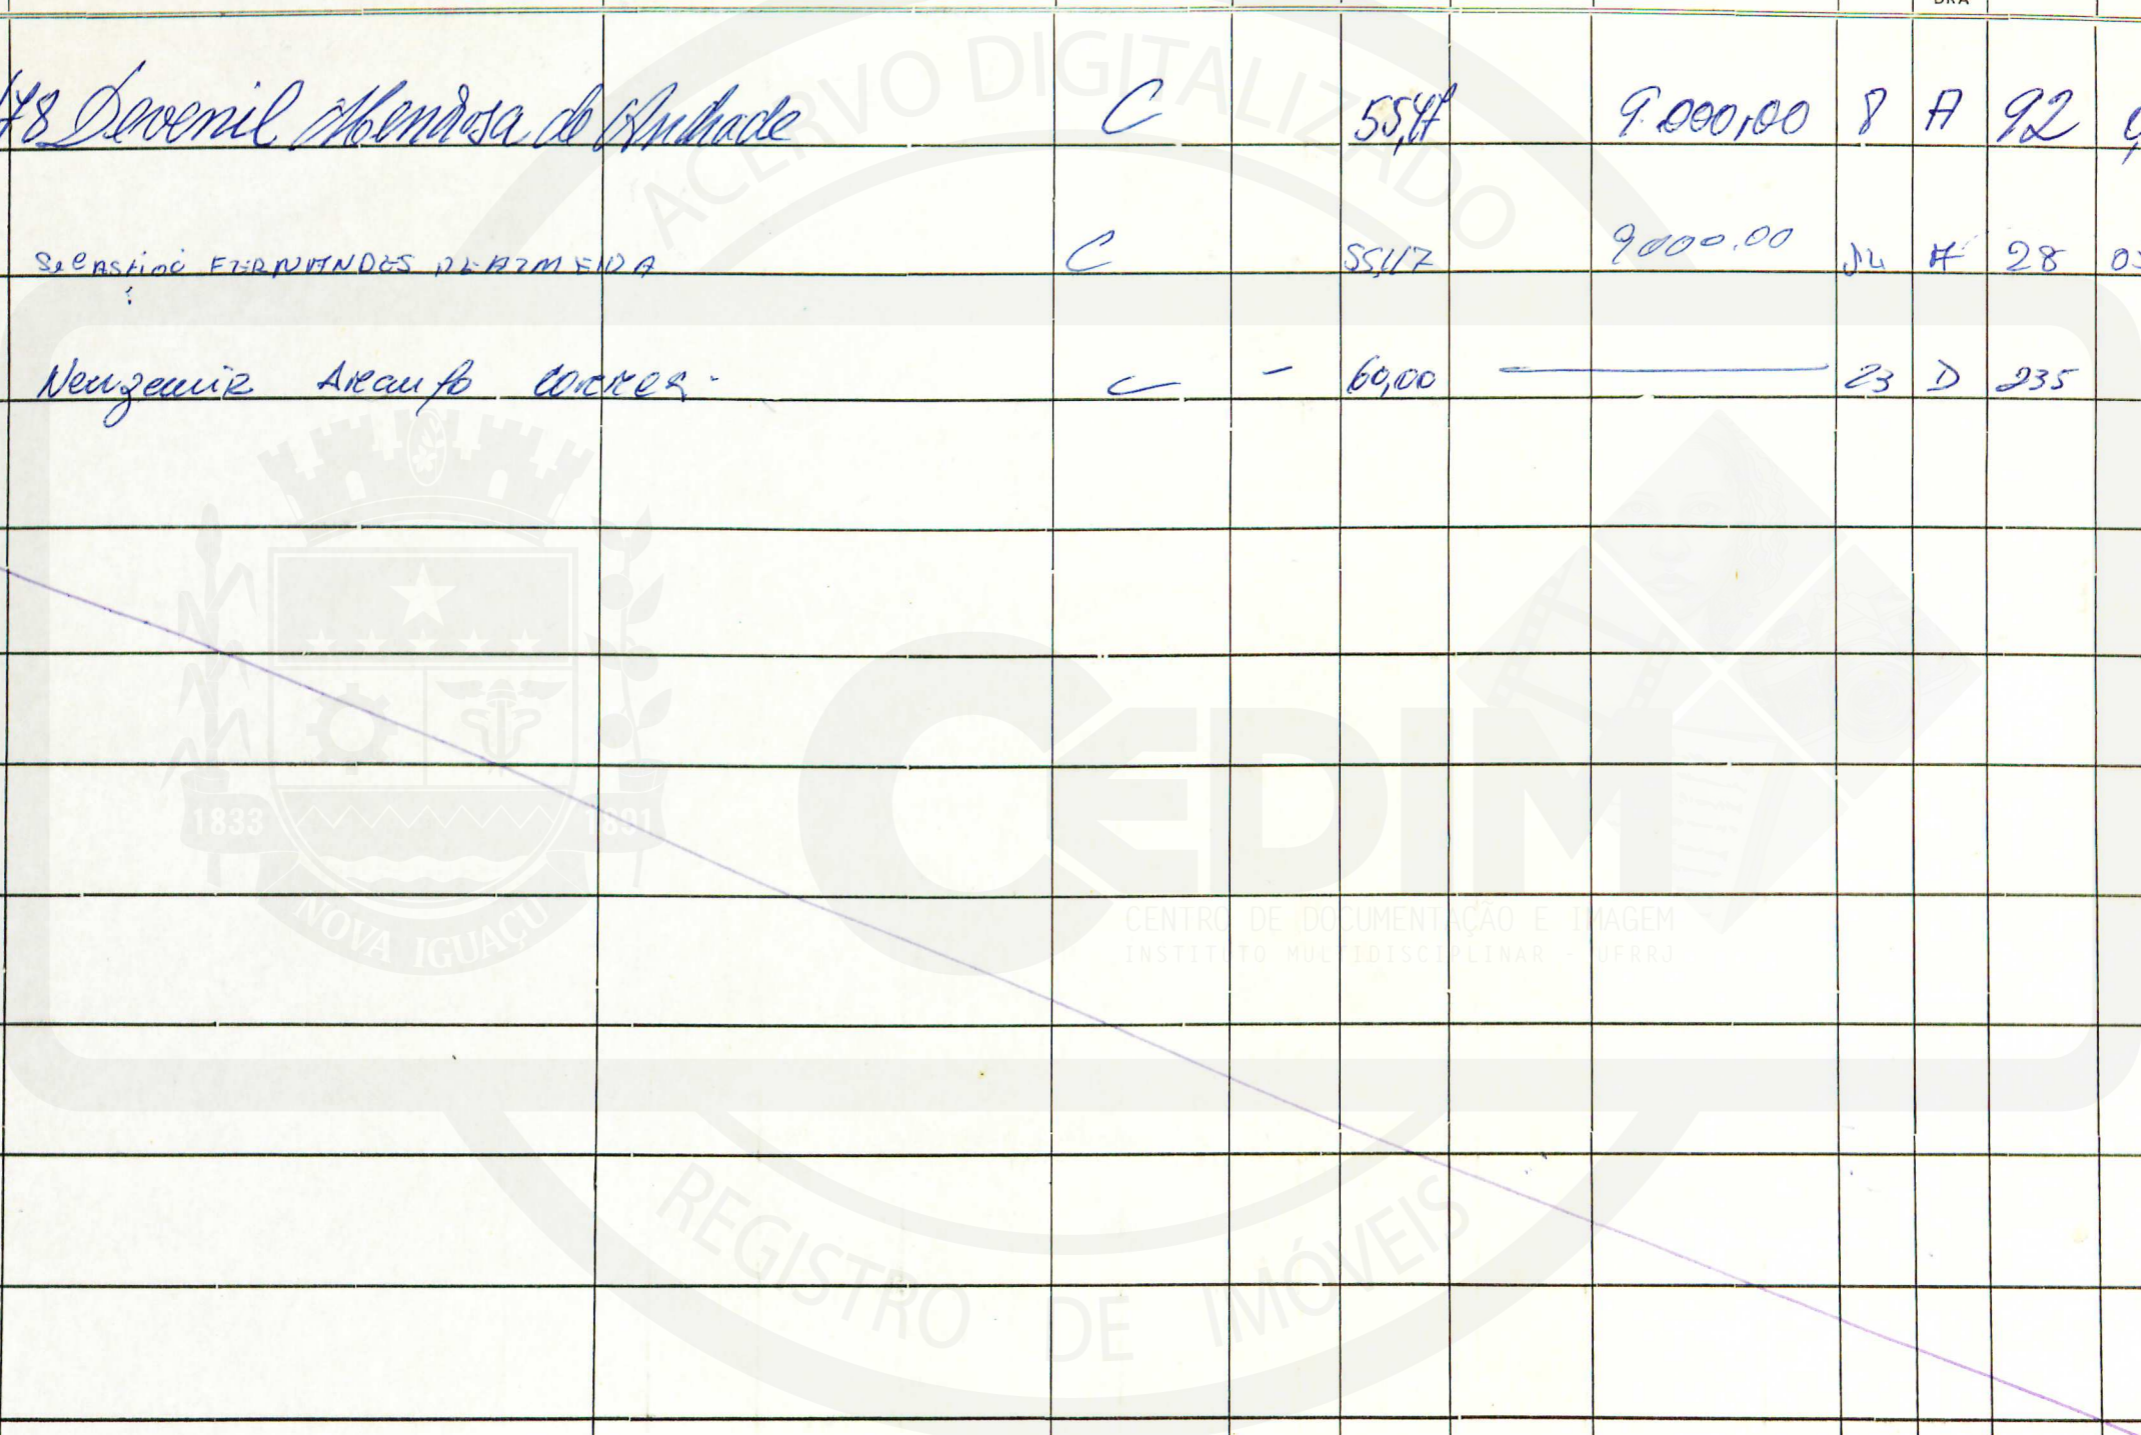 DRA
78 Devenil Mendosa de Andrade C 55,17 9.000,00 8 A 92
Sebastião FERNANDES DE AZMEIDA C 55,17 9000.00 A 28 03
Neuzemir Araujo Correa - C - 60,00 — 23 D 235
ACERVO DIGITALIZADO
1833 1891
NOVA IGUAÇU
CEDIM
CENTRO DE DOCUMENTAÇÃO E IMAGEM
INSTITUTO MULTIDISCIPLINAR - UFRRJ
REGISTRO DE IMÓVEIS